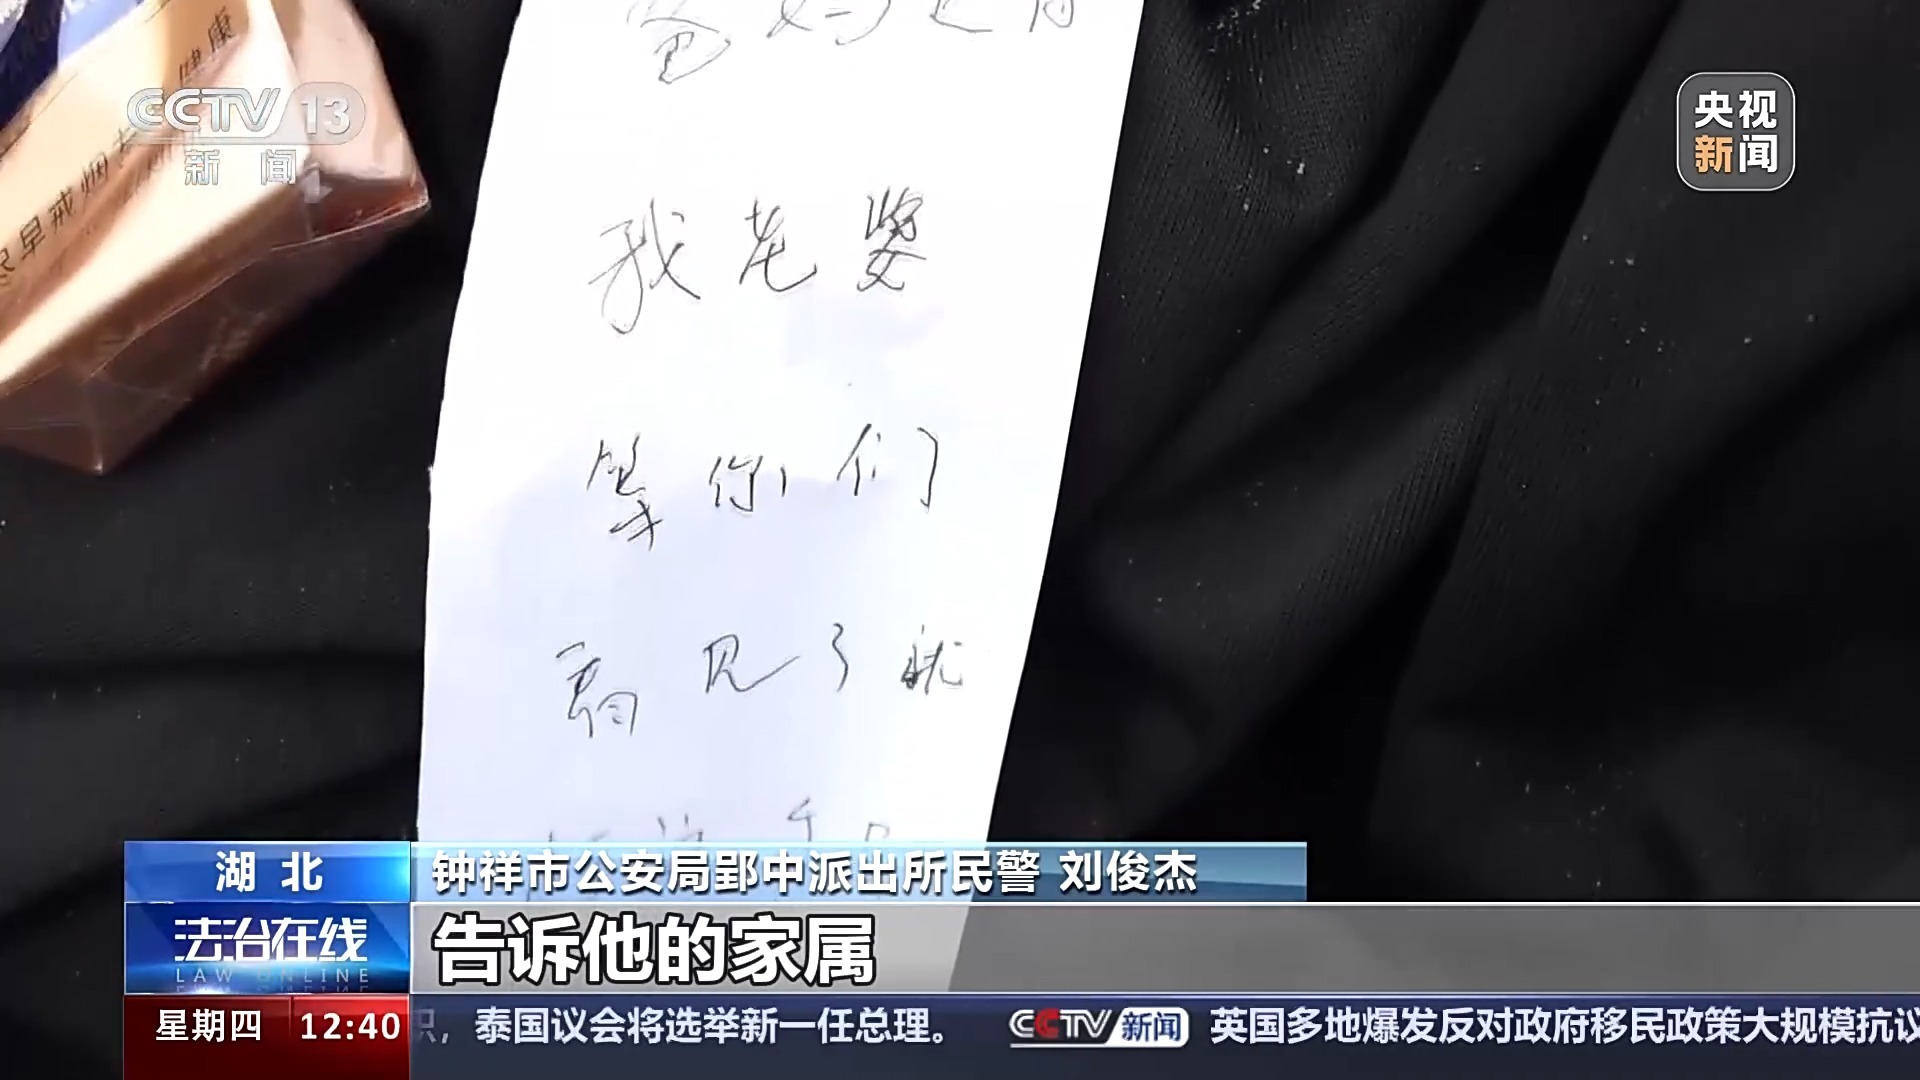 爸妈还有
我老婆
等你们
看见了就
尽早戒烟
健康
CCTV 13
新闻
央视
新闻
湖北
钟祥市公安局郢中派出所民警 刘俊杰
法治在线
LAW ONLINE
告诉他的家属
星期四 12:40
职，泰国议会将选举新一任总理。 CCTV新闻 英国多地爆发反对政府移民政策大规模抗议